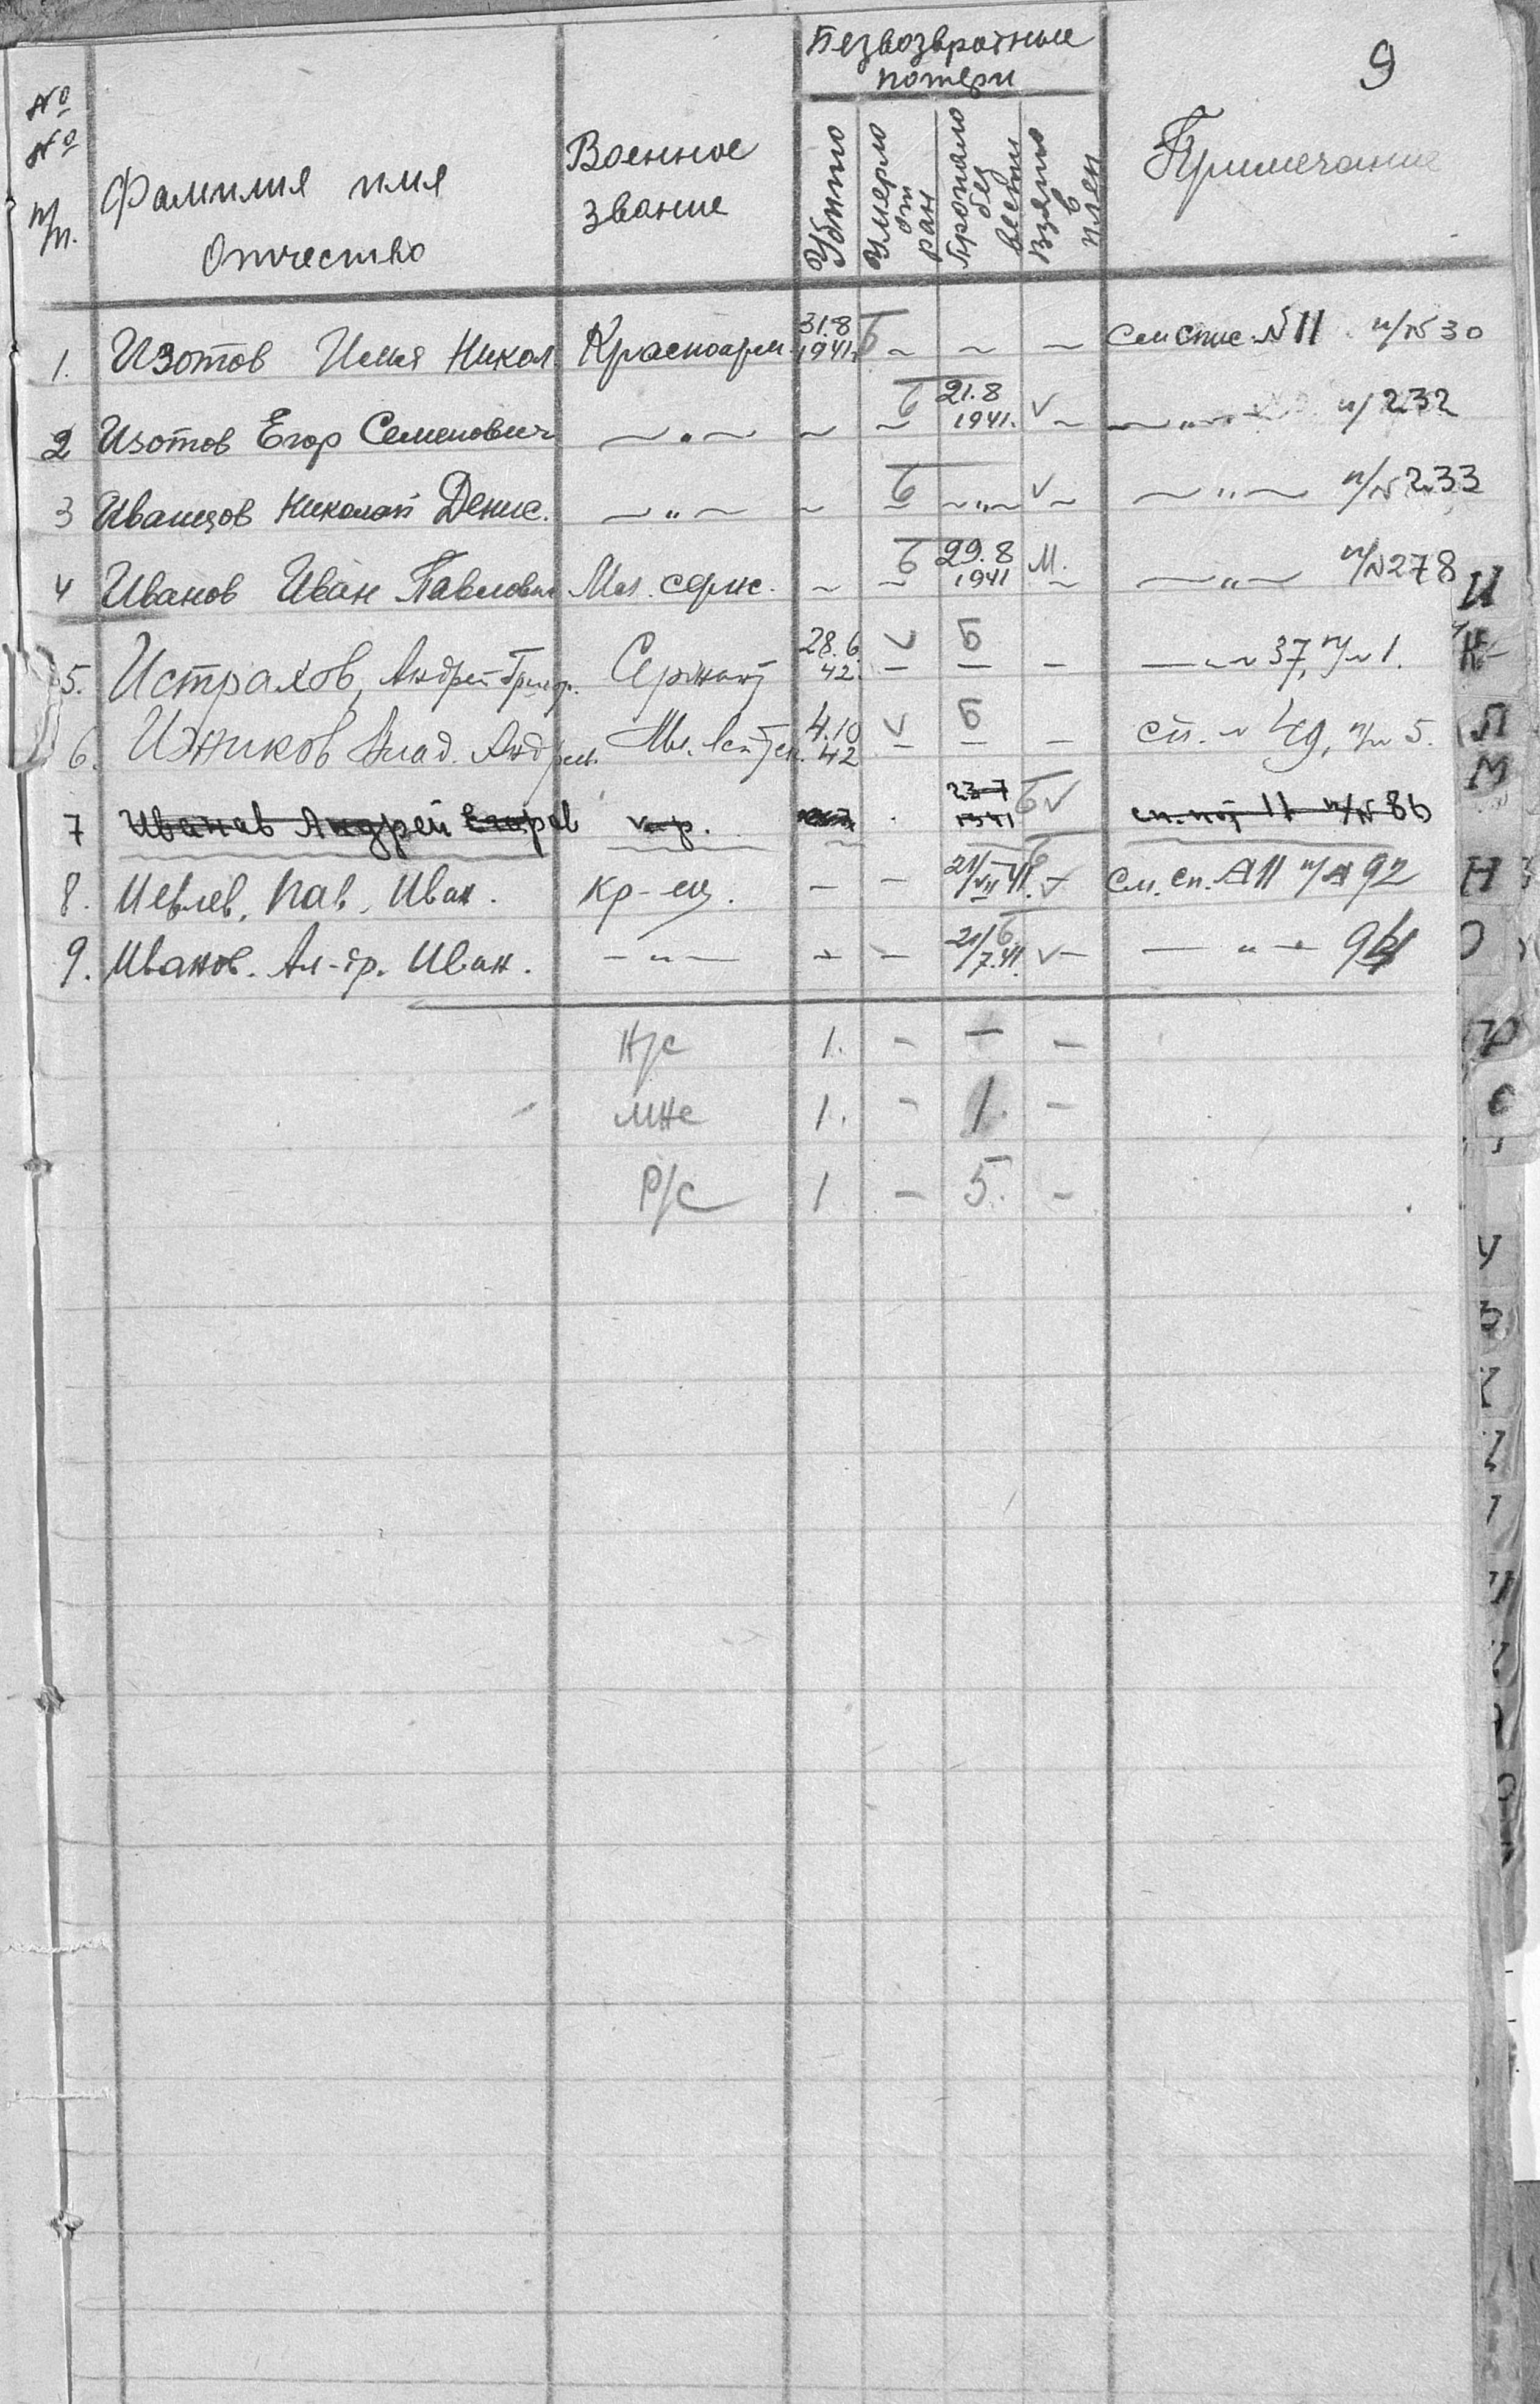 9
№
№
п/п.
Фамилия имя
Отчество
Военное
звание
Безвозвратные
потери
Убито
Умерло
от
ран
Пропало
без
вести
Взято
в
плен
Примечание
1. Изотов Илья Никол. Красноарм. 31.8 1941г. Б ~ ~ ~ См спис. №11 п/№30
2 Изотов Егор Семенович —"— ~ Б ~ 21.8 1941. V ~ —"— п/232
3 Иванцов Николай Денис. —"— ~ Б ~ ~"~ V ~ —"— п/№233
4 Иванов Иван Павлович Мл. серж. ~ Б ~ 29.8 1941 М. ~ —"— п/№278
5. Истрахов, Андрей Григор. Сержант 28.6. 42. V – Б – – —"— 37, п/№1.
6. Ижиков Влад. Андреев. Мл. Лейтен. 4.10 42 V – Б – – сп. № 49, п/№ 5.
7 Иванов Андрей Егоров кр. 23 7 1941 Б V сп. пот 11 п/№ 86
8. Иевлев, Пав. Иван. Кр-ец. – – 21/VII 41. Б V – См. сп. №11 п/№ 92
9. Иванов. Ал-др. Иван. –"– – – 21/7.41. Б V – — " — 94
Н/С 1. – – –
МНС 1. – 1. –
Р/С 1 – 5. –
И
К
Л
М
Н
О
Р
С
У